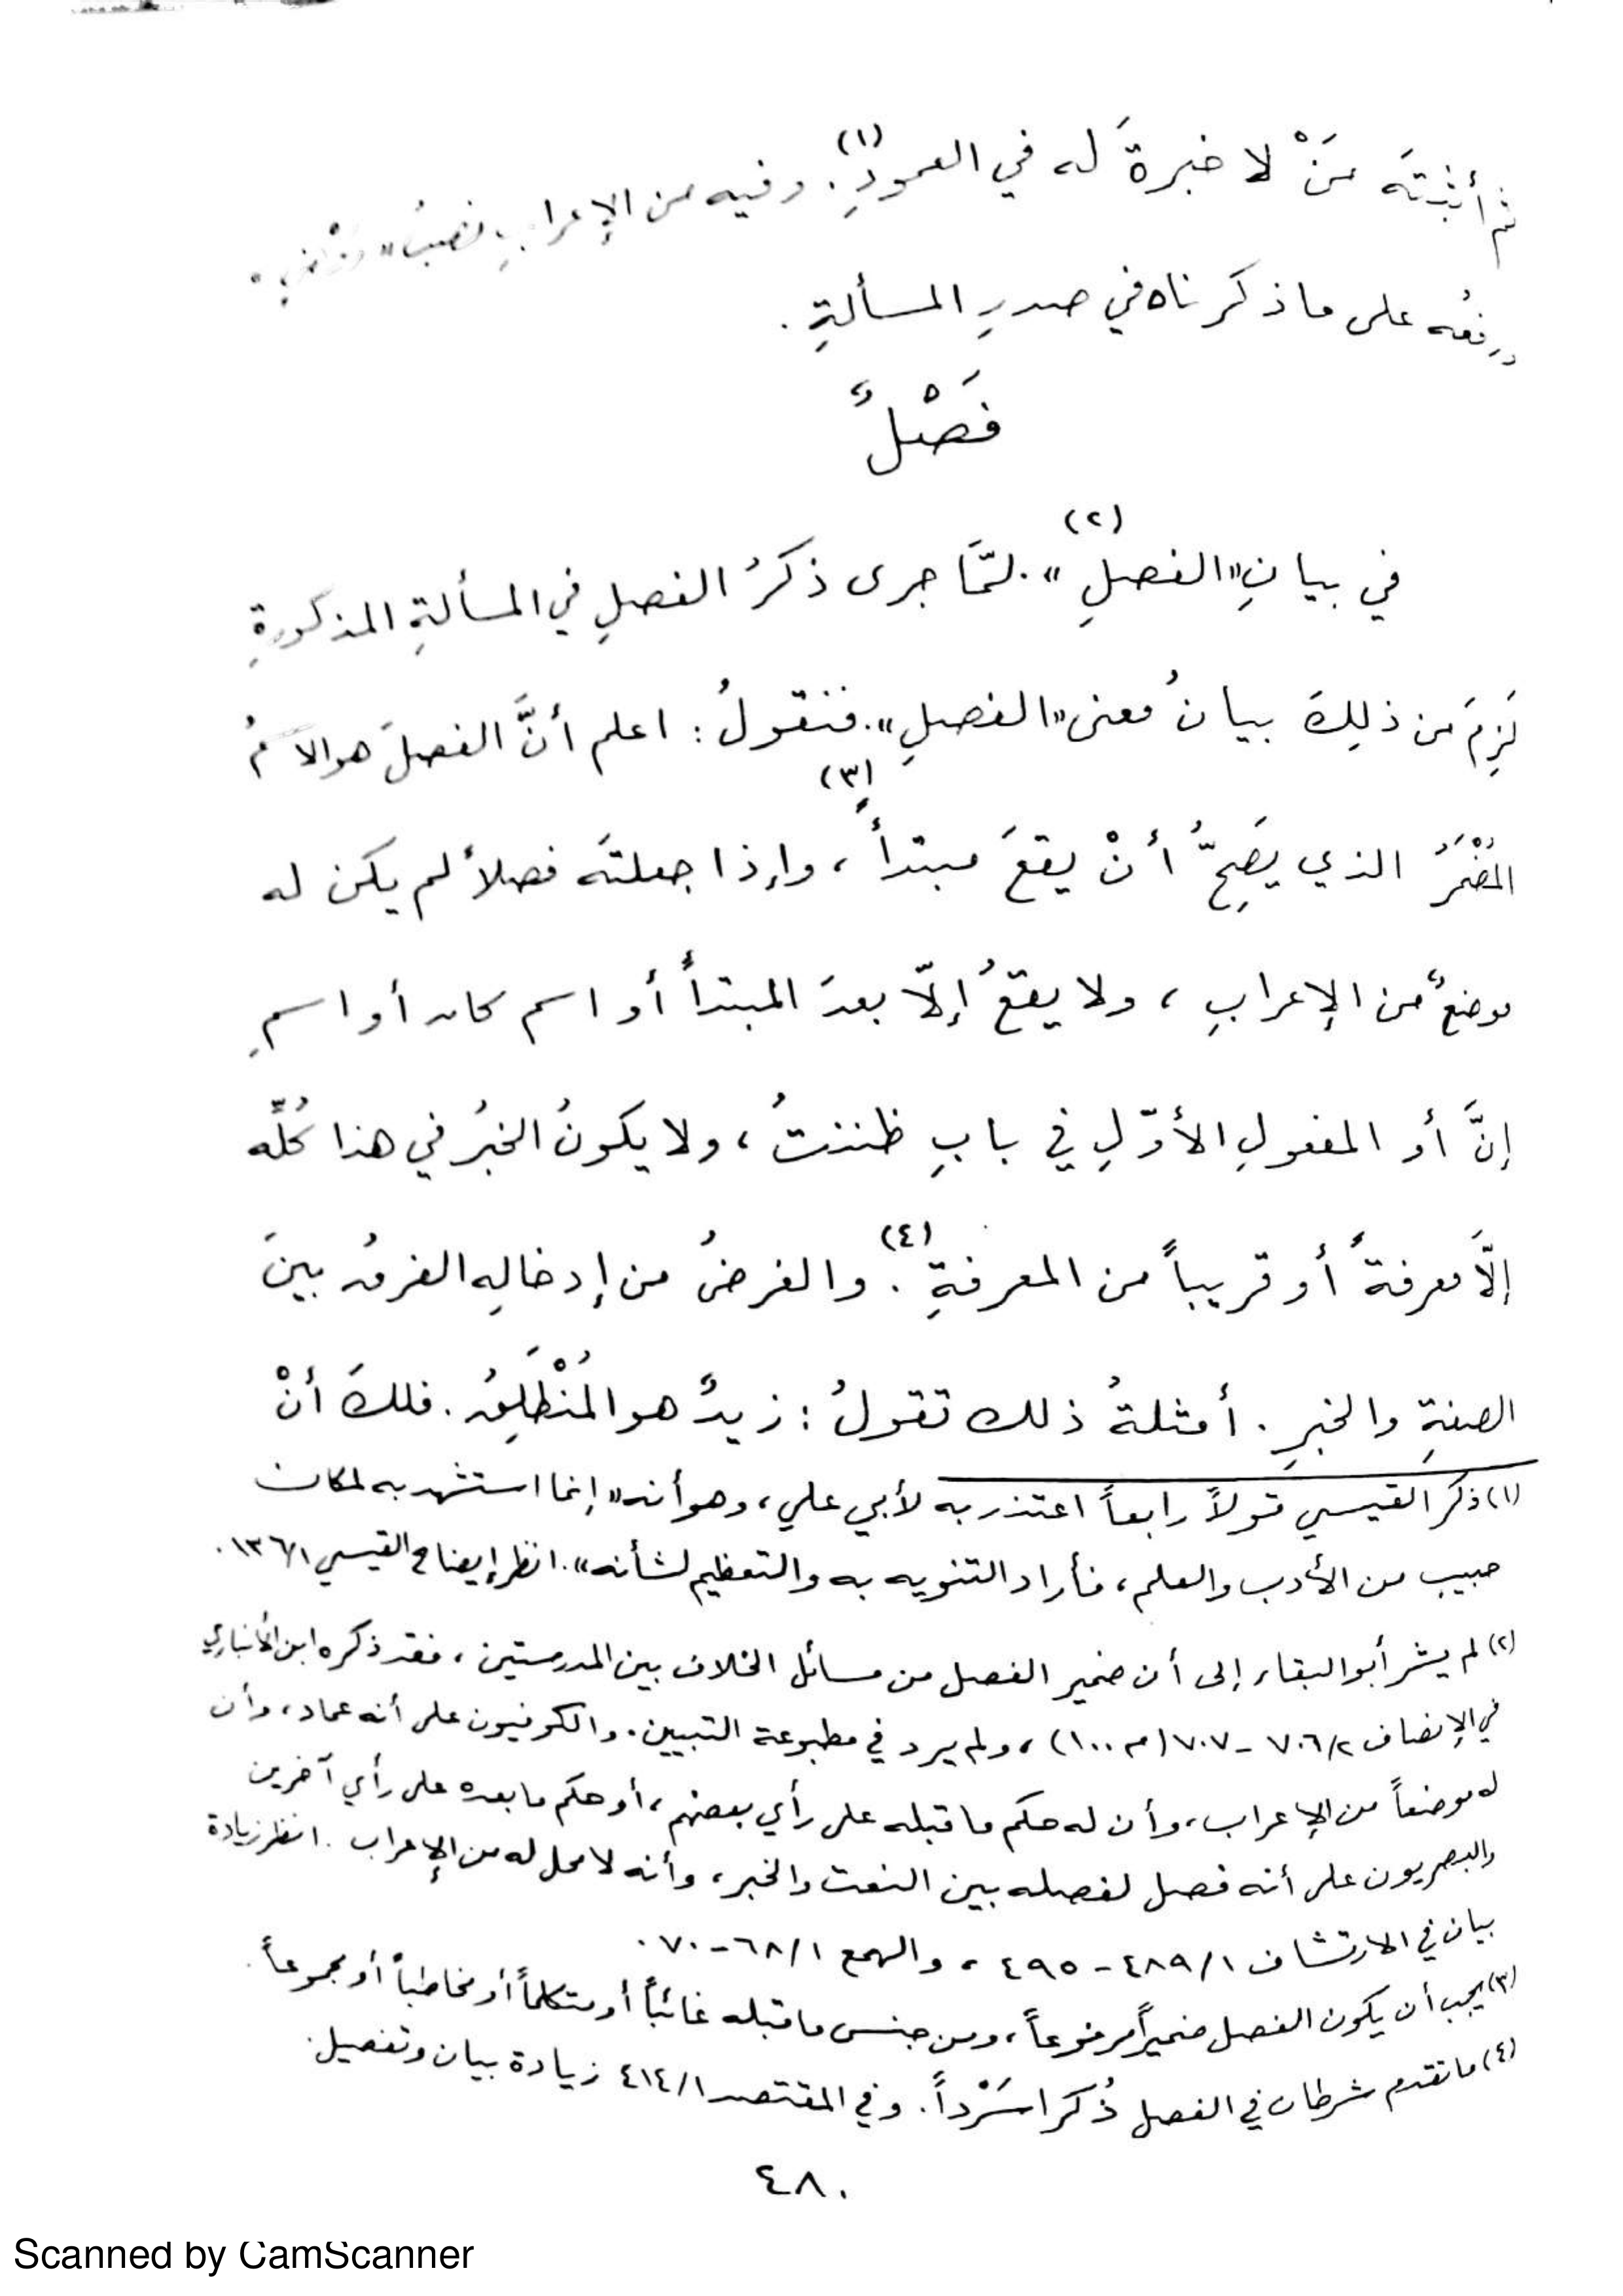 ثم أثبتَه مَنْ لا خبرةَ له في العمودِ(١). وفيه من الإعرابِ نصبُ
ورفعُه على ما ذكرناه في صدرِ المسألةِ.
فَصْلٌ
في بيانِ «الفصلِ(٢)». لمَّا جرى ذكرُ الفصلِ في المسألةِ المذكورةِ
لَزِمَ من ذلِكَ بيانُ معنى «الفصلِ». فنقولُ: اعلم أنَّ الفصلَ هو الاسمُ
المُضْمَرُ الذي يَصِحُّ أنْ يقعَ مبتدأً(٣)، وإذا جعلتَه فصلاً لم يكن له
موضعٌ من الإعرابِ، ولا يقعُ إلّا بعدَ المبتدأ أو اسم كان أو اسمِ
إنَّ أو المفعولِ الأوّلِ في بابِ ظننتُ، ولا يكونُ الخبرُ في هذا كُلِّه
إلَّا معرفةً أو قريباً من المعرفةِ(٤). والغرضُ من إدخالِه الفرقُ بينَ
الصفةِ والخبرِ. أمثلةُ ذلك تقولُ: زيدٌ هو المُنْطَلِقُ. فلكَ أنْ
(١) ذكر القيسي قولاً رابعاً اعتذر به لأبي علي، وهو أنه «إنما استشهد به لمكان
حبيب من الأدب والعلم، فأراد التنويه به والتعظيم لشأنه». انظر إيضاح القيسي ١٣٦/١.
(٢) لم يشر أبو البقاء إلى أن ضمير الفصل من مسائل الخلاف بين المدرستين، فقد ذكره ابن الأنباري
في الإنصاف ٧٠٦/٢ - ٧٠٧ (م ١٠٠)، ولم يرد في مطبوعة التبيين. والكوفيون على أنه عماد، وأن
له موضعاً من الإعراب، وأن له حكم ما قبله على رأي بعضهم، أو حكم ما بعده على رأي آخرين
والبصريون على أنه فصل لفصله بين النعت والخبر، وأنه لا محل له من الإعراب. انظر زيادة
بيان في الارتشاف ٤٨٩/١ - ٤٩٥، والهمع ٦٨/١ - ٧٠.
(٣) يجب أن يكون الفصل ضميراً مرفوعاً، ومن جنس ما قبله غائباً أو متكلماً أو مخاطباً أو مجموعاً.
(٤) ما تقدم شرطان في الفصل ذُكرا سَرْداً. وفي المقتصد ٤١٤/١ زيادة بيان وتفصيل.
٤٨٠
Scanned by CamScanner